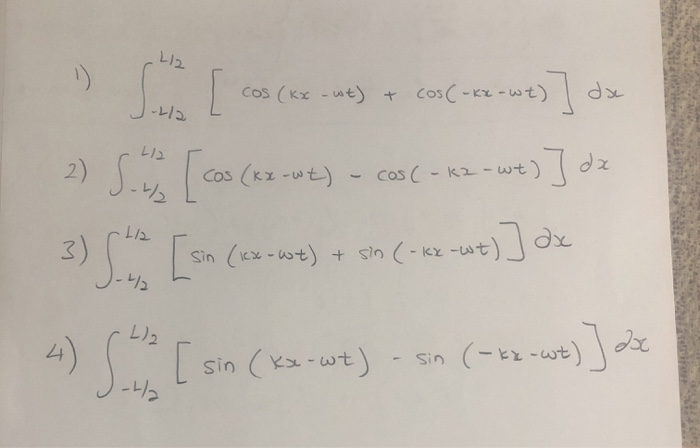 1) ∫_{-L/2}^{L/2} [ cos (kx - ωt) + cos(-kx - ωt) ] dx
2) ∫_{-L/2}^{L/2} [ cos (kx - ωt) - cos( - kx - ωt) ] dx
3) ∫_{-L/2}^{L/2} [ sin (kx - ωt) + sin (-kx - ωt) ] dx
4) ∫_{-L/2}^{L/2} [ sin (kx - ωt) - sin (-kx - ωt) ] dx